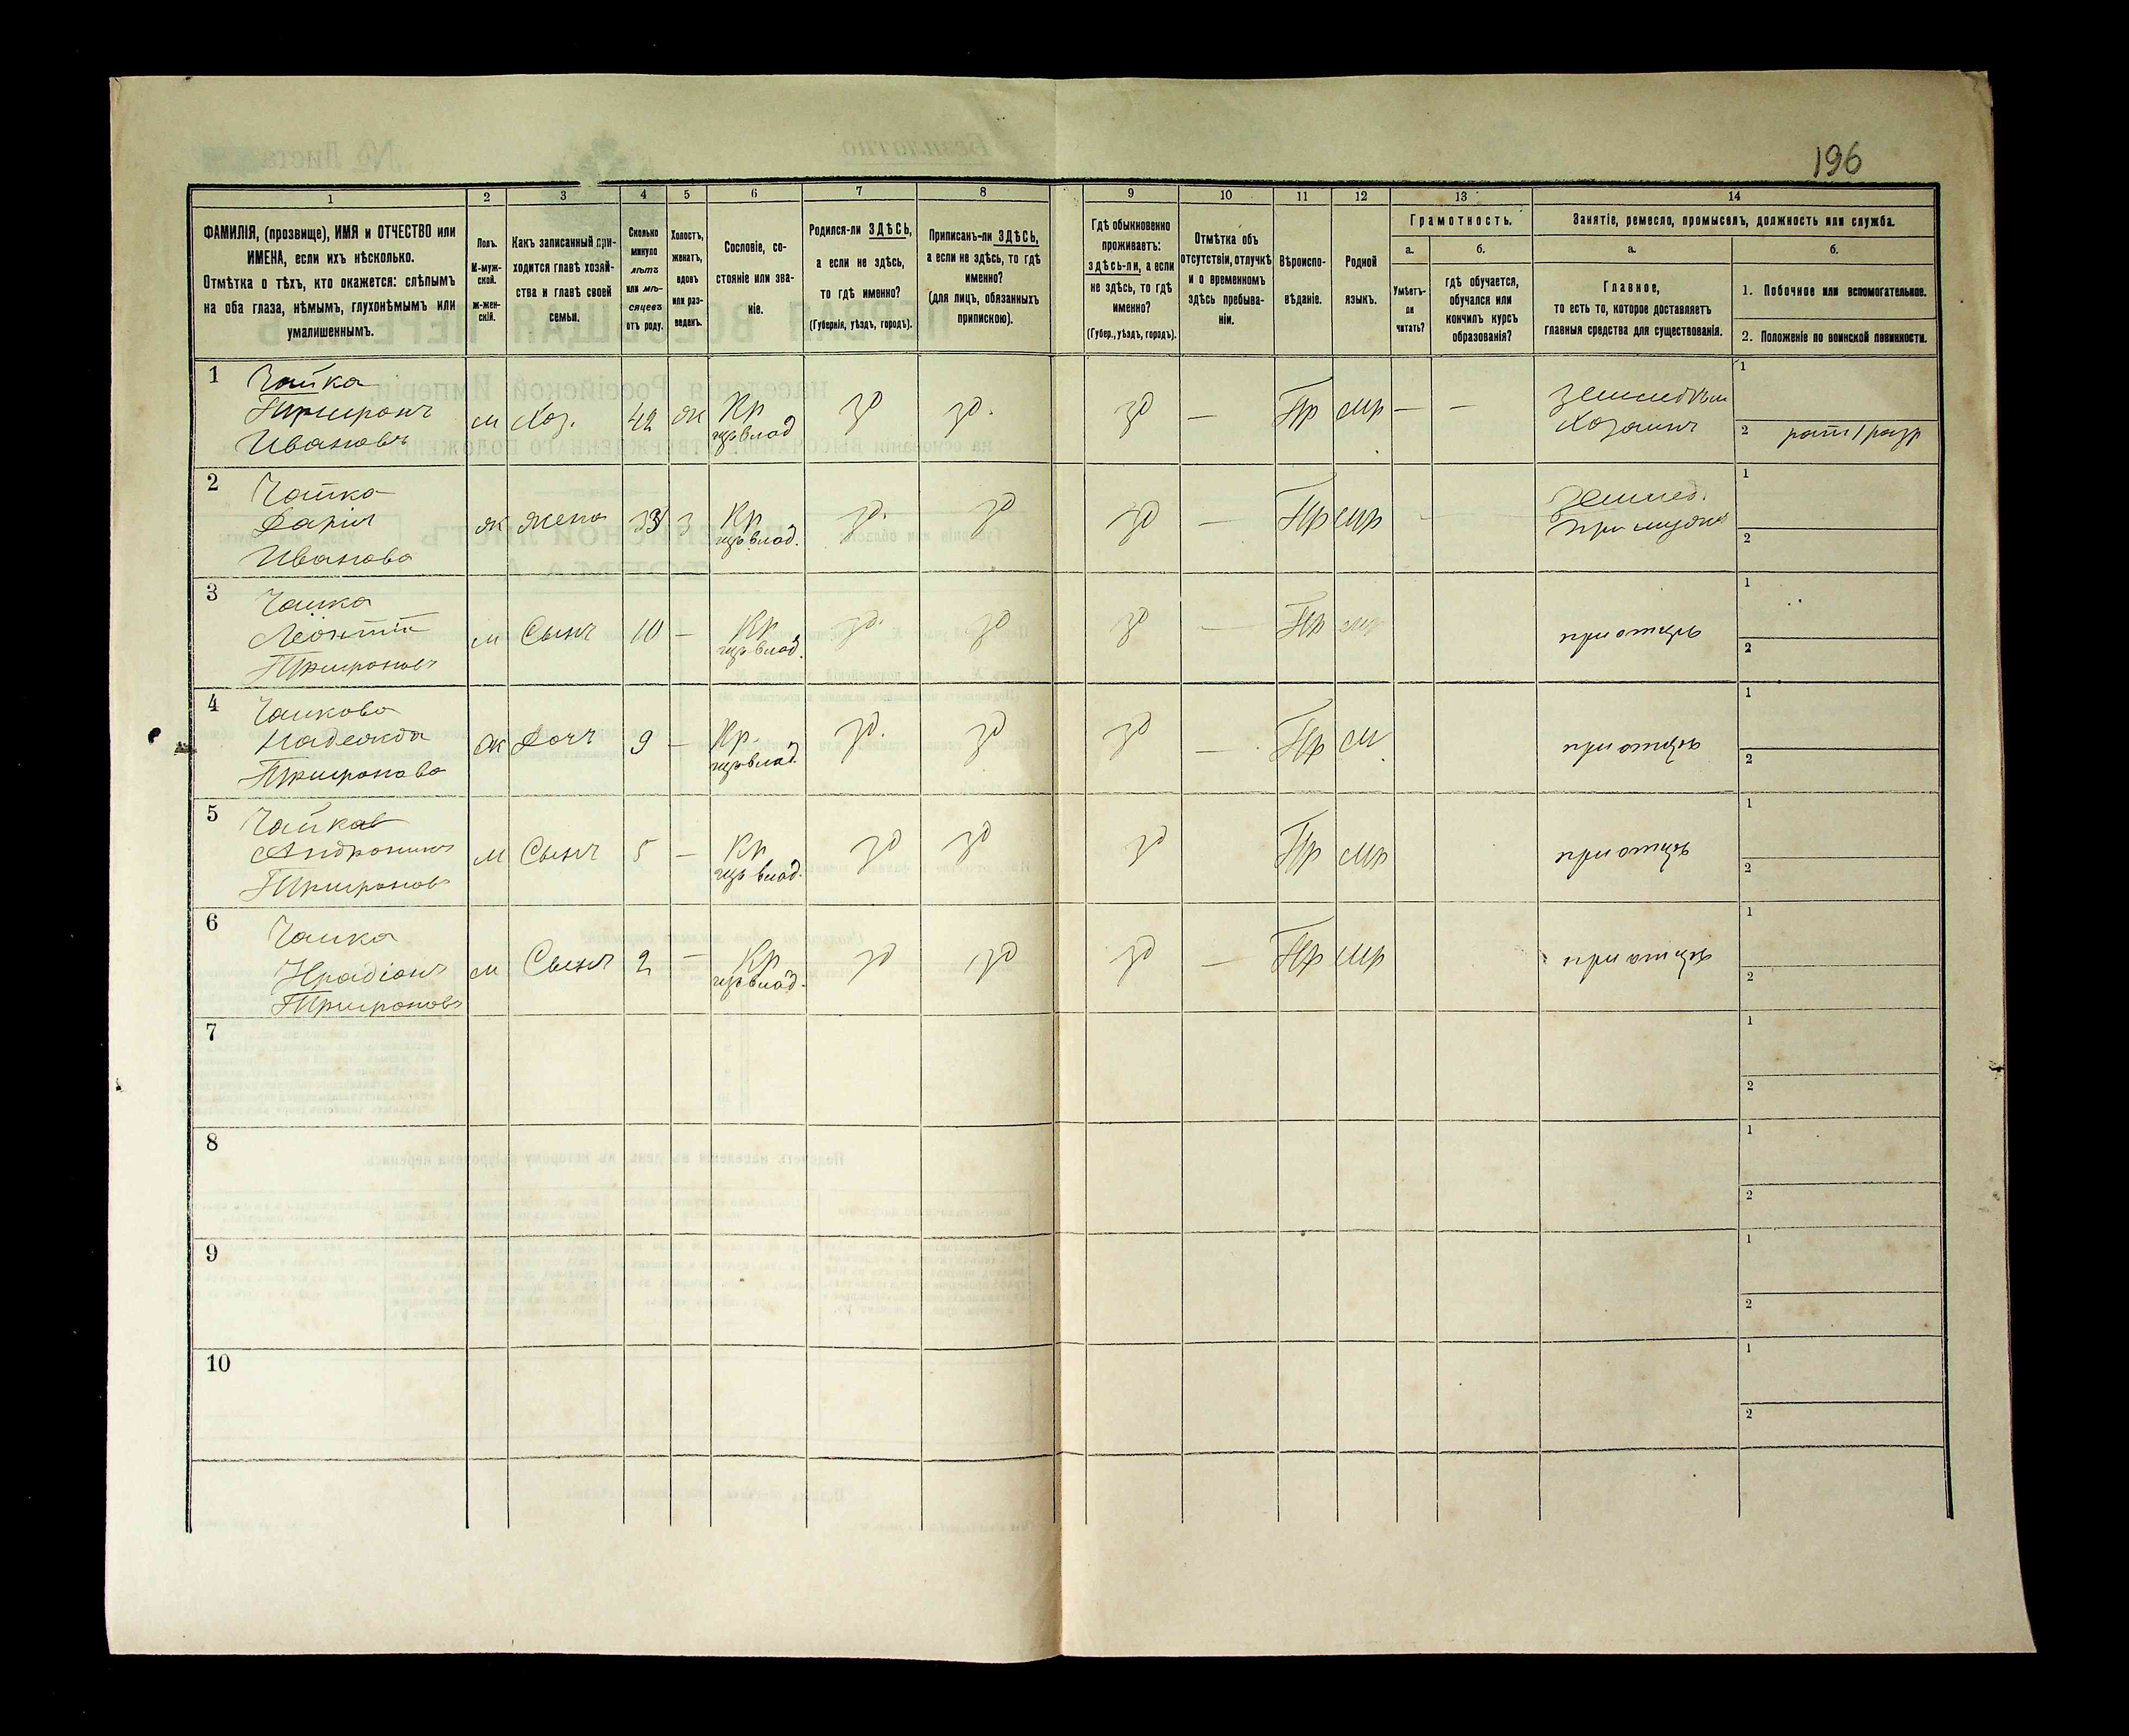 196
1 2 3 4 5 6 7 8 9 10 11 12 13 14
ФАМИЛІЯ, (прозвище), ИМЯ и ОТЧЕСТВО или
ИМЕНА, если ихъ нѣсколько.
Отмѣтка о тѣхъ, кто окажется: слѣпымъ
на оба глаза, нѣмымъ, глухонѣмымъ или
умалишеннымъ.
Полъ.
М-муж-
ской.
Ж-жен-
скій.
Какъ записанный при-
ходится главѣ хозяй-
ства и главѣ своей
семьи.
Сколько
минуло
лѣтъ
или мѣ-
сяцевъ
отъ роду.
Холостъ,
женатъ,
вдовъ
или раз-
веденъ.
Сословіе, со-
стояніе или зва-
ніе.
Родился-ли ЗДѢСЬ,
а если не здѣсь,
то гдѣ именно?
(Губернія, уѣздъ, городъ).
Приписанъ-ли ЗДѢСЬ,
а если не здѣсь, то гдѣ
именно?
(для лицъ, обязанныхъ
припискою).
Гдѣ обыкновенно
проживаетъ:
здѣсь-ли, а если
не здѣсь, то гдѣ
именно?
(Губер., уѣздъ, городъ).
Отмѣтка объ
отсутствіи, отлучкѣ
и о временномъ
здѣсь пребыва-
ніи.
Вѣроиспо-
вѣданіе.
Родной
языкъ.
Грамотность.
а.
Умѣетъ-
ли
читать?
б.
гдѣ обучается,
обучался или
кончилъ курсъ
образованія?
Занятіе, ремесло, промыселъ, должность или служба.
а.
Главное,
то есть то, которое доставляетъ
главныя средства для существованія.
б.
1. Побочное или вспомогательное.
2. Положеніе по воинской повинности.
1 Чайка
Ивановъ
м Хоз. 42 ж Кр
влад
зд зд. зд — Пр мр — —
Хозяинъ
1
2 рат 1 разр
2 Чайка
Дарія
Иванова
ж жена З Кр
влад.
зд. зд зд — Пр мр —
Землед.
При мужѣ
1
2
3 Чайка
Леонтій
м Сынъ 10 — Кр
влад.
зд. зд зд — Пр мр
при отцѣ
1
2
4 Чайкова
Надежда
ж Дочь 9 — Кр.
влад.
зд. зд зд — Пр м
при отцѣ
1
2
5 Чайка
Андроникъ
м Сынъ 5 — Кр
влад.
зд зд зд Пр мр
при отцѣ
1
2
6 Чайка
м Сынъ 2 — Кр
влад.
зд зд зд — Пр мр
при отцѣ
1
2
7
1
2
8
1
2
9
1
2
10
1
2